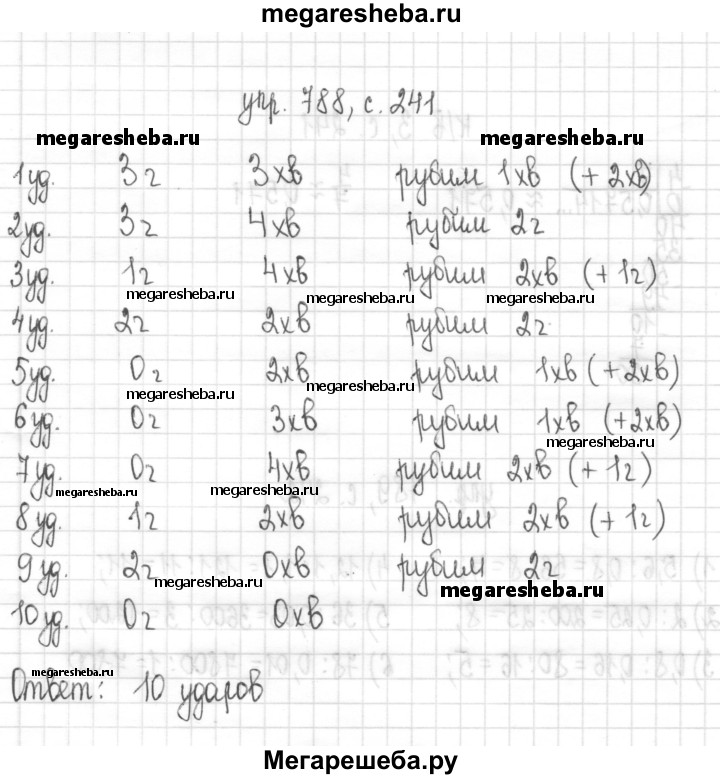 megaresheba.ru
упр. 788, с. 241
megaresheba.ru megaresheba.ru
1уд. 3г 3хв рубим 1хв (+ 2хв)
2уд. 3г 4хв рубим 2г
3уд. 1г 4хв рубим 2хв (+ 1г)
megaresheba.ru megaresheba.ru megaresheba.ru
4уд. 2г 2хв рубим 2г
5уд. 0г 2хв рубим 1хв (+2хв)
megaresheba.ru megaresheba.ru
6уд. 0г 3хв рубим 1хв (+2хв)
megaresheba.ru
7уд. 0г 4хв рубим 2хв (+ 1г)
megaresheba.ru megaresheba.ru
8уд. 1г 2хв рубим 2хв (+ 1г)
9уд. 2г 0хв рубим 2г
megaresheba.ru megaresheba.ru
10уд. 0г 0хв
megaresheba.ru
Ответ: 10 ударов
Мегарешеба.ру